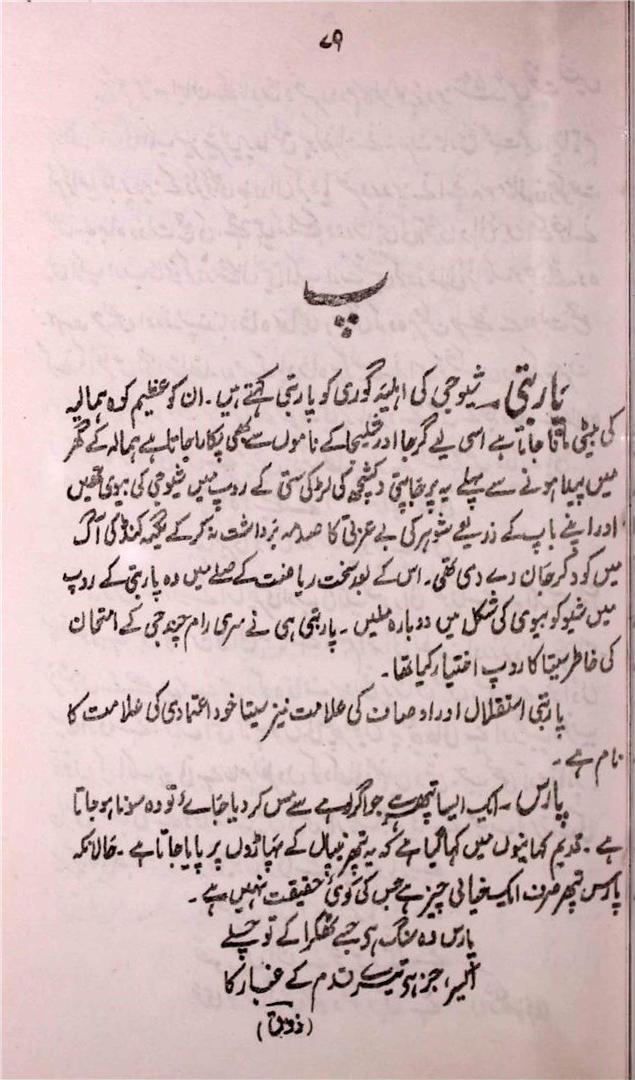 ۷۹
پ
پاربتی۔ شیوجی کی اہلیہ گوری کو پاربتی کہتے ہیں۔ ان کو عظیم کوہ ہمالیہ
کی بیٹی مانا جاتا ہے اسی لیے گرجا اور شیلجا کے ناموں سے بھی پکارا جاتا ہے ہمالہ کے گھر
میں پیدا ہونے سے پہلے یہ پرجاپتی دکشچھ کی لڑکی ستی کے روپ میں شیوجی کی بیوی تھیں
اور اپنے باپ کے ذریعے شوہر کی بے عزتی کا صدمہ برداشت نہ کر کے یگیہ کنڈ کی آگ
میں کود کر جان دے دی تھی۔ اس کے بعد سخت ریاضت کے صلے میں وہ پاربتی کے روپ
میں شیو کو بیوی کی شکل میں دوبارہ ملیں۔ پاربتی ہی نے سری رام چندرجی کے امتحان
کی خاطر سیتا کا روپ اختیار کیا تھا۔
پاربتی استقلال اور اوصاف کی علامت نیز سیتا خود اعتمادی کی علامت کا
نام ہے۔
پارس۔ ایک ایسا پتھر ہے جو اگر لوہے سے مس کر دیا جائے تو وہ سونا ہو جاتا
ہے۔ قدیم کہانیوں میں کہا گیا ہے کہ یہ پتھر نیپال کے پہاڑوں پر پایا جاتا ہے۔ حالانکہ
پارس پتھر صرف ایک خیالی چیز ہے جس کی کوئی حقیقت نہیں ہے۔
پارس وہ سنگ ہو جسے ٹھکرا کے تو چلے
اکسیر، جز ہو تیرے قدم کے غبار کا
(ذوق)